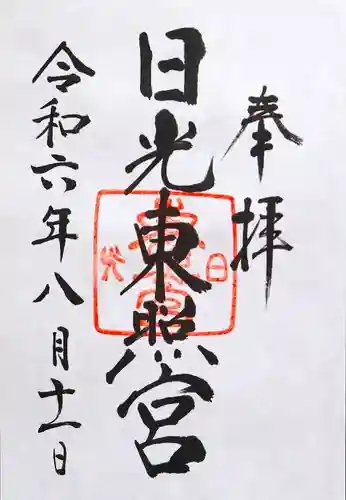 奉拝
日光東照宮
令和六年八月十一日